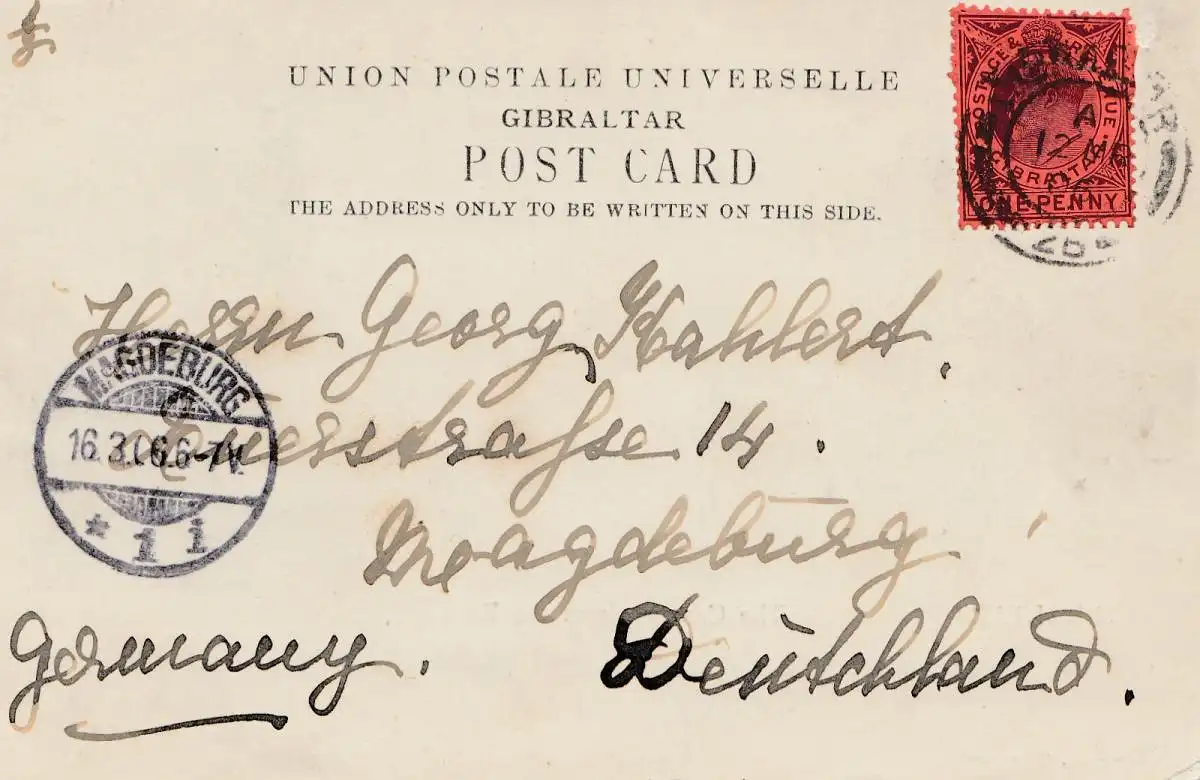 UNION POSTALE UNIVERSELLE
GIBRALTAR
POST CARD
THE ADDRESS ONLY TO BE WRITTEN ON THIS SIDE.
POSTAGE & REVENUE
GIBRALTAR
ONE PENNY
A
12
Herrn Georg Kahlert.
Querstraſse 14.
Magdeburg
Deutchland.
Germany.
MAGDEBURG
16.3.06.6-7V.
* 1 i